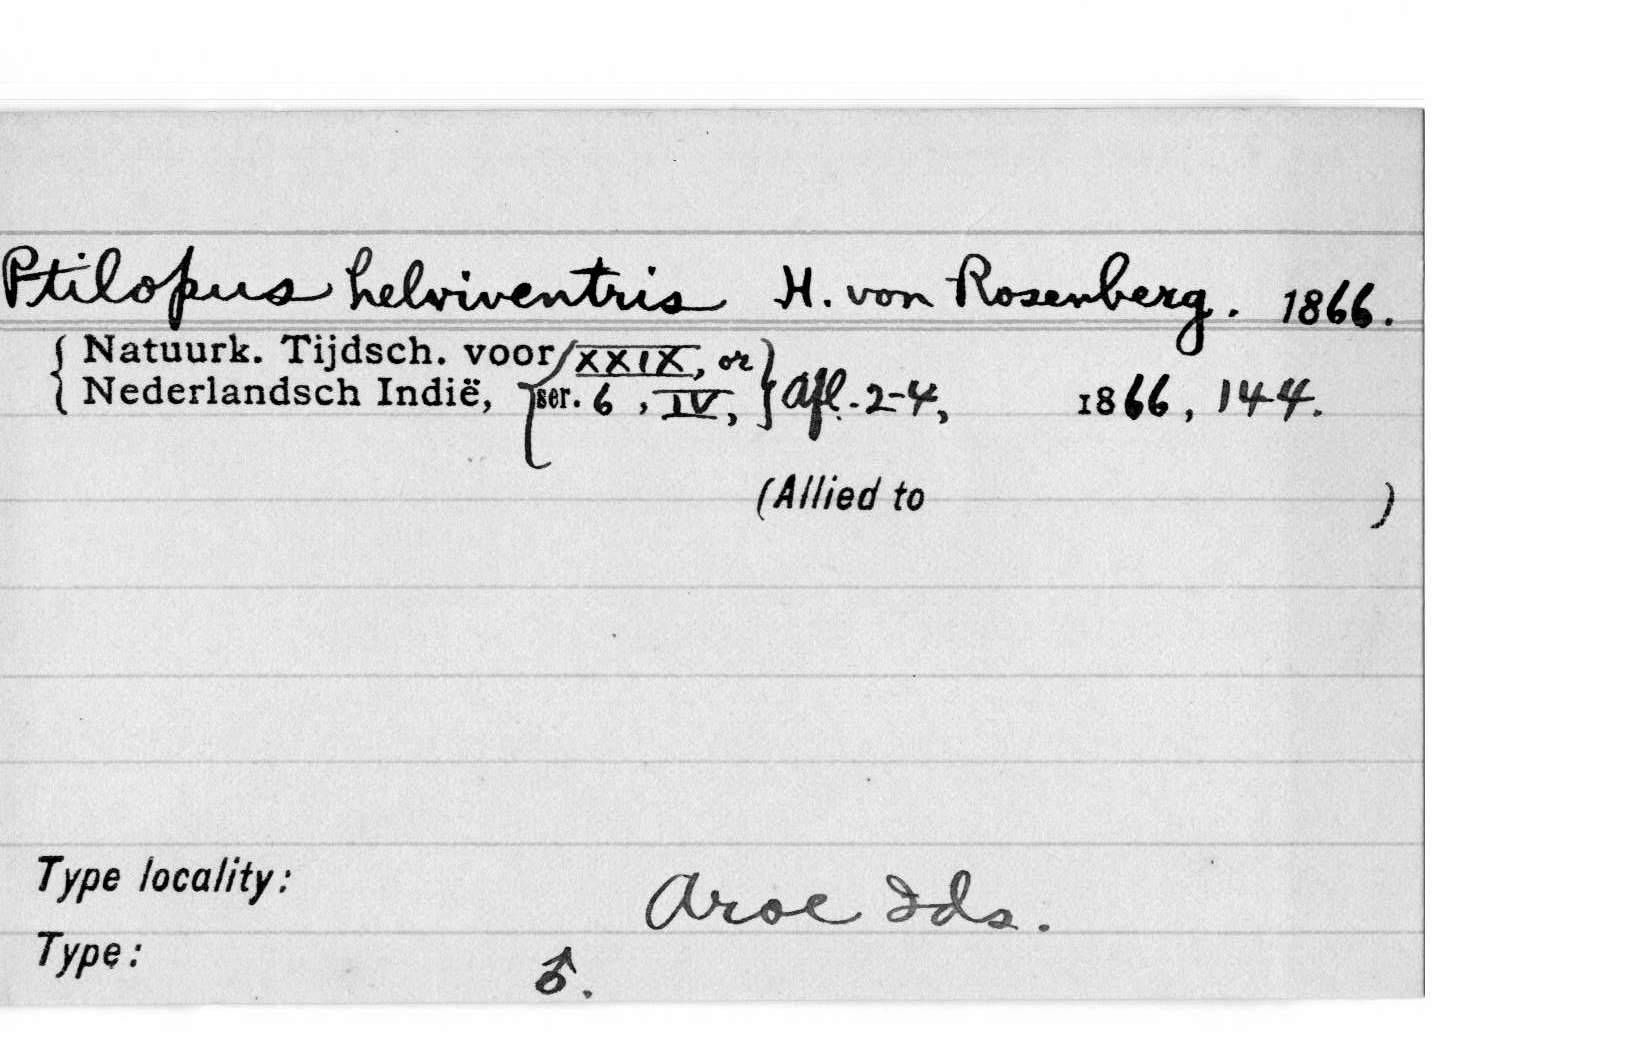 Ptilopus helviventris H. von Rosenberg. 1866.
{ Natuurk. Tijdsch. voor { XXIX, or }
{ Nederlandsch Indië, { ser. 6, IV, } Afl. 2-4, 1866, 144.
(Allied to )
Type locality: Aroe Ids.
Type: ♂.